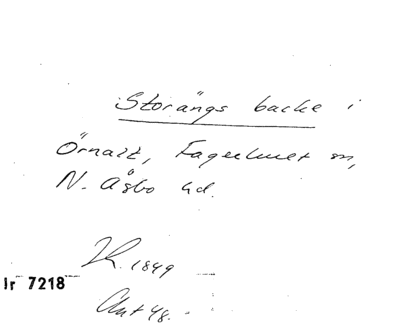 Storängs backe i
Örnalt, Fagerhult sn,
N. Åsbo hd.
R. 1849
Ir 7218
Ant 48.